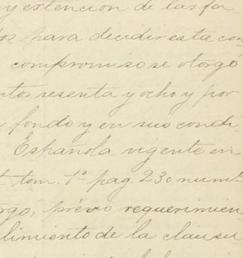 y extencion de las fa
para decidir esta con
compromiso se otorgó
sesenta y ocho y por
fondo y en sus condi
Española vigente en
tom. 1º pag. 230 num
previo requerimien
limiento de la clausu